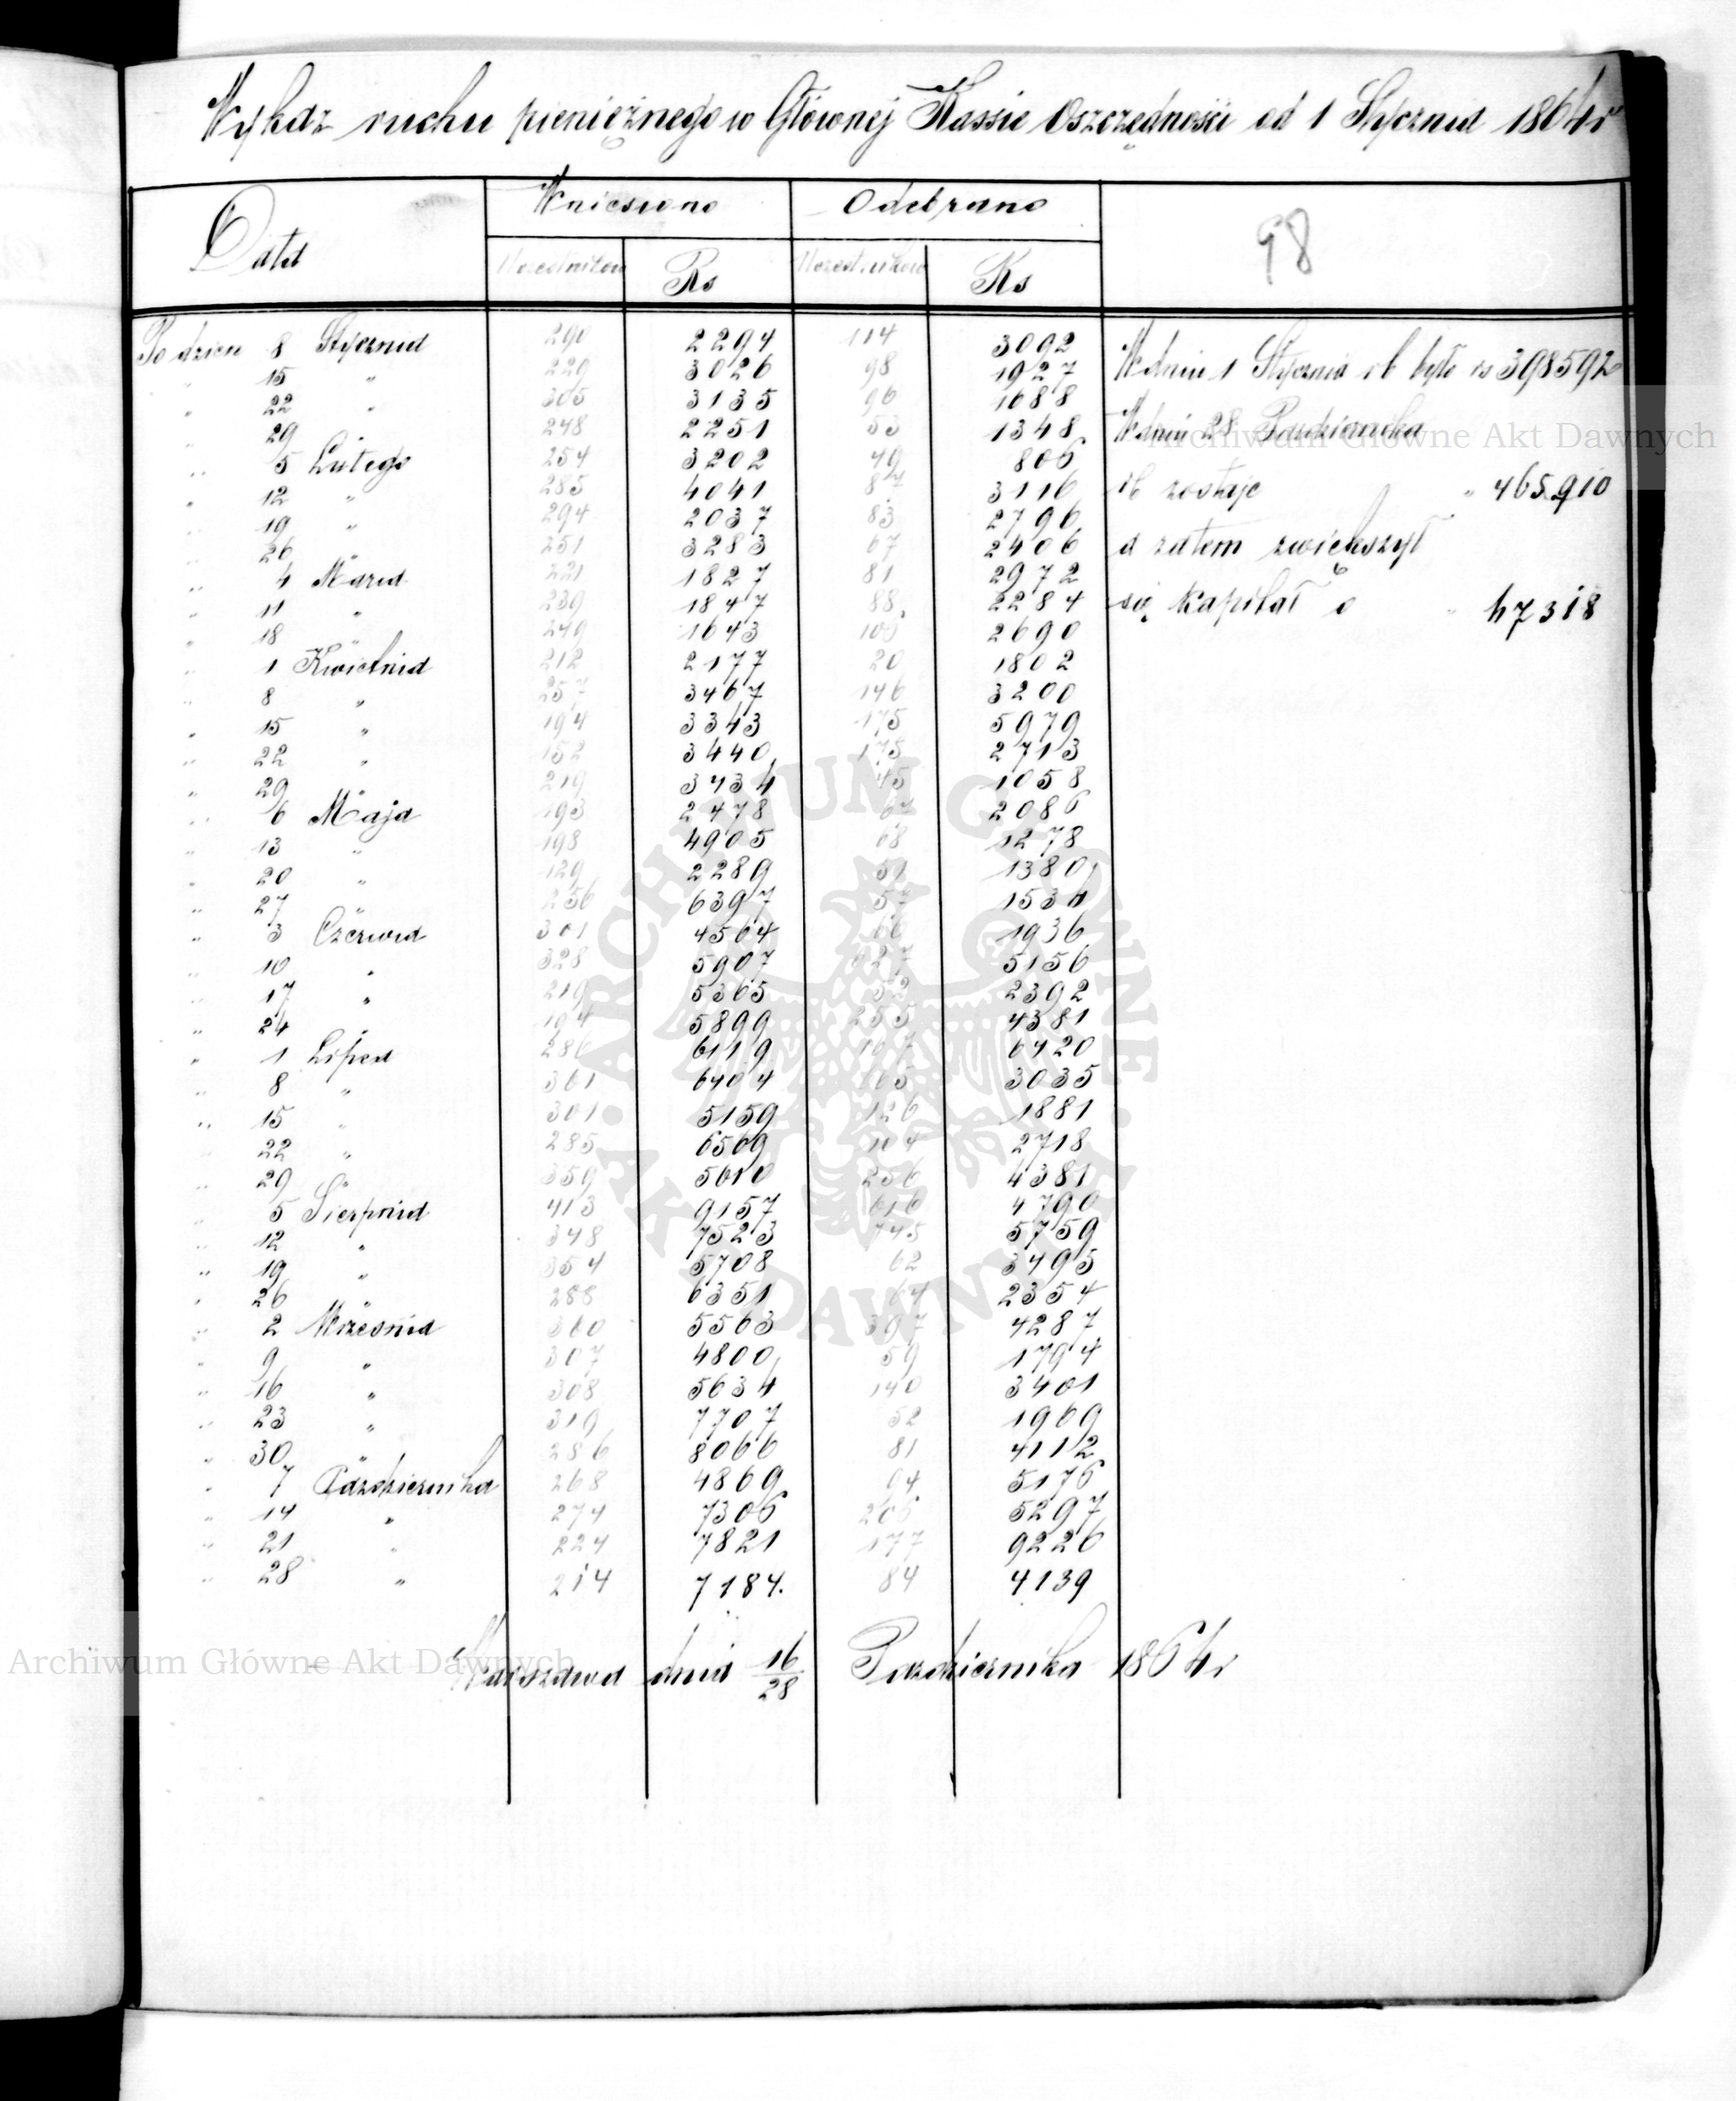 Wykaz ruchu pieniężnego w Głównej Kassie Oszczędności od 1 Stycznia 1864 r
98
Data Wniesiono Odebrano
Rs Rs
Po dzien 8 Stycznia 290 2294 114 3092
" 15 " 229 3026 98 1927
" 22 " 305 3135 96 1688
" 29 248 2251 53 1348
" 5 Lutego 254 3202 49 806
" 12 " 285 4041 87 3116
" 19 " 294 2037 83 2796
" 26 " 251 3283 67 2406
" 4 Marca 221 1827 81 2972
" 11 " 239 1847 88 2284
" 18 " 249 1643 106 2690
" 1 Kwietnia 212 2177 20 1802
" 8 " 257 3467 146 3200
" 15 " 194 3343 175 5979
" 22 " 152 3440 175 2713
" 29 " 219 3434 45 1058
" 6 Maja 193 2478 2086
" 13 " 198 4905 68 1278
" 20 " 129 2289 51 1380
" 27 " 256 6397 57 1534
" 3 Czerwca 301 4564 66 1936
" 10 " 328 5907 5156
" 17 " 219 5365 52 2392
" 24 " 194 5899 255 4381
" 1 Lipca 286 6119 107 6420
" 8 " 361 6404 3035
" 15 " 301 5159 126 1881
" 22 " 285 6569 104 2718
" 29 " 359 5610 256 4381
" 5 Sierpnia 413 9157 616 4790
" 12 " 348 7523 745 5759
" 19 " 354 5708 62 3495
" 26 " 288 6351 64 2354
" 2 Września 360 5563 397 4287
" 9 " 307 4800 59 1794
" 16 " 308 5634 140 3401
" 23 " 319 7707 52 1969
" 30 " 286 8066 81 4112
" 7 Pazdziernika 268 4869 94 5176
" 14 " 274 7306 206 5297
" 21 " 224 7821 177 9226
" 28 " 214 7184. 84 4139
W dniu 1 Stycznia rb było rs 398592
W dniu 28 Pazdziernika
rb zostaje " 465910
a zatem zwiększył
się kapitał o " 67318
Warszawa dnia 16/28 Pazdziernika 1864 r
Archiwum Główne Akt Dawnych
Archiwum Główne Akt Dawnych
ARCHIWUM GŁÓWNE AKT DAWNYCH